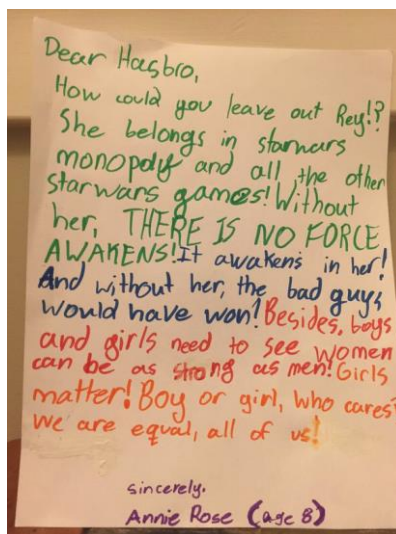 Dear Hasbro,
How could you leave out Rey!?
She belongs in starwars
monopoly and all the other
starwars games! Without
her, THERE IS NO FORCE
AWAKENS! It awakens in her!
And without her, the bad guys
would have won! Besides, boys
and girls need to see women
can be as strong as men! Girls
matter! Boy or girl, who cares?
We are equal, all of us!
sincerely,
Annie Rose (age 8)